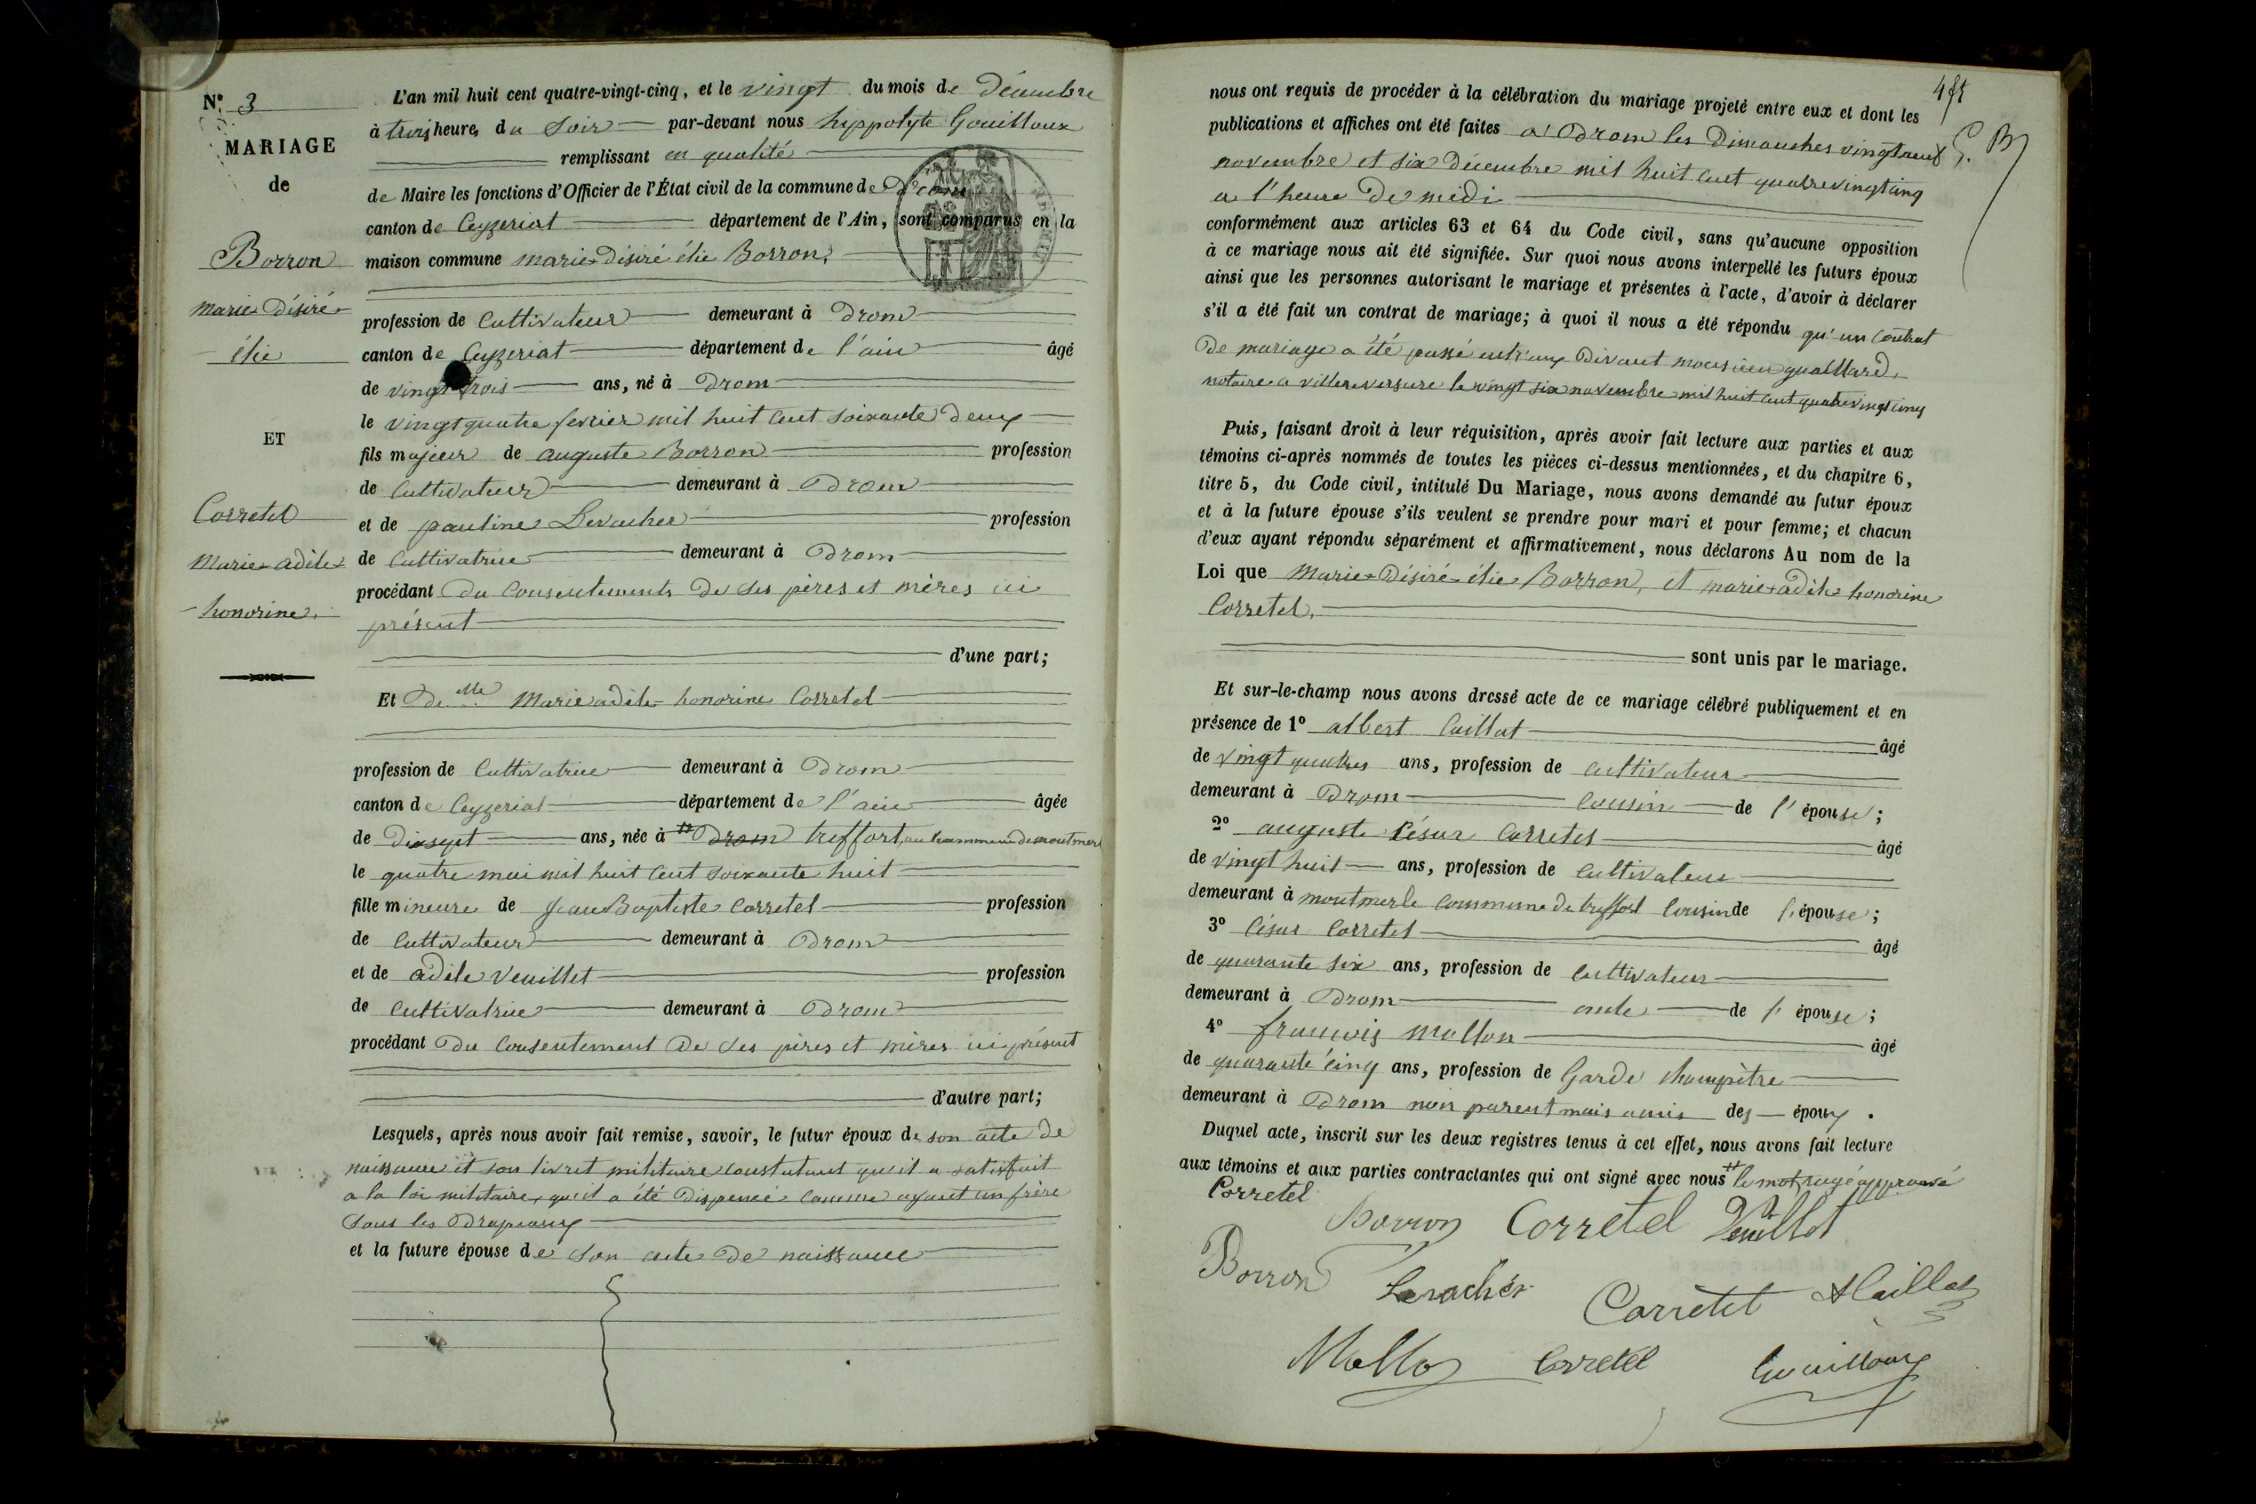 N° 3
MARIAGE
de
Borron
marie Désiré
élie
ET
Corretel
Marie adèle
honorine
L'an mil huit cent quatre-vingt-cinq, et le vingt du mois de Décembre
à trois heures du Soir par-devant nous hyppolyte Gouilloux
remplissant en qualité
de Maire les fonctions d'Officier de l'État civil de la commune de Drom
canton de Ceyzeriat département de l'Ain, sont comparus en la
maison commune marie Désiré élie Borron,
profession de Cultivateur demeurant à Drom
canton de Ceyzeriat département de l'ain âgé
de vingt trois ans, né à Drom
le vingt quatre fevrier mil huit cent soixante deux
fils majeur de auguste Borron profession
de Cultivateur demeurant à Drom
et de pauline Levacher profession
de Cultivatrice demeurant à Drom
procédant du Consentements de ses pères et mères ici
présent
d'une part;
Et De Mlle Marie adèle honorine Corretel
profession de Cultivatrice demeurant à Drom
canton de Ceyzeriat département de l'ain âgée
de Dixsept ans, née à Drom treffort, commune de montmerl
le quatre mai mil huit cent soixante huit
fille mineure de Jean Baptiste Corretel profession
de Cultivateur demeurant à Drom
et de adèle Veuillet profession
de Cultivatrice demeurant à Drom
procédant Du Consentement De ses pères et mères ici présent
d'autre part;
Lesquels, après nous avoir fait remise, savoir, le futur époux de son acte de
naissance et son livret militaire constatant qu'il a satisfait
a la loi militaire, qu'il a été Dispencé comme ayant un frère
Sous les Drapeaux
et la future épouse de son acte de naissance
485
G. B
nous ont requis de procéder à la célébration du mariage projeté entre eux et dont les
publications et affiches ont été faites a Drom les Dimanches vingtneuf
novembre et six décembre mil huit cent quatrevingt cinq
a l'heure De midi
conformément aux articles 63 et 64 du Code civil, sans qu'aucune opposition
à ce mariage nous ait été signifiée. Sur quoi nous avons interpellé les futurs époux
ainsi que les personnes autorisant le mariage et présentes à l'acte, d'avoir à déclarer
s'il a été fait un contrat de mariage; à quoi il nous a été répondu qu'un Contrat
De mariage a été passé entr'eux Devant monsieur
notaire a villereversure le vingt six novembre mil huit cent quatrevingt cinq
Puis, faisant droit à leur réquisition, après avoir fait lecture aux parties et aux
témoins ci-après nommés de toutes les pièces ci-dessus mentionnées, et du chapitre 6,
titre 5, du Code civil, intitulé Du Mariage, nous avons demandé au futur époux
et à la future épouse s'ils veulent se prendre pour mari et pour femme; et chacun
d'eux ayant répondu séparément et affirmativement, nous déclarons Au nom de la
Loi que Marie Désiré élie Borron, et marie adèle honorine
Corretel,
sont unis par le mariage.
Et sur-le-champ nous avons dressé acte de ce mariage célébré publiquement et en
présence de 1° albert Caillat âgé
de vingt quatres ans, profession de cultivateur
demeurant à Drom Cousin de l'épouse;
2° auguste César Corretel âgé
de vingt huit ans, profession de Cultivateur
demeurant à montmerle commune de treffort Cousin de l'épouse;
3° César Corretel âgé
de quarante six ans, profession de Cultivateur
demeurant à Drom oncle de l'épouse;
4° françois Mollon âgé
de quarante cinq ans, profession de Garde champêtre
demeurant à Drom non parent mais amis des époux.
Duquel acte, inscrit sur les deux registres tenus à cet effet, nous avons fait lecture
aux témoins et aux parties contractantes qui ont signé avec nous le mot rayé approuvé
Corretel
Borron Corretel Veuillet
Borron Levacher Corretel A Caillat
Mollon Corretel Gouilloux